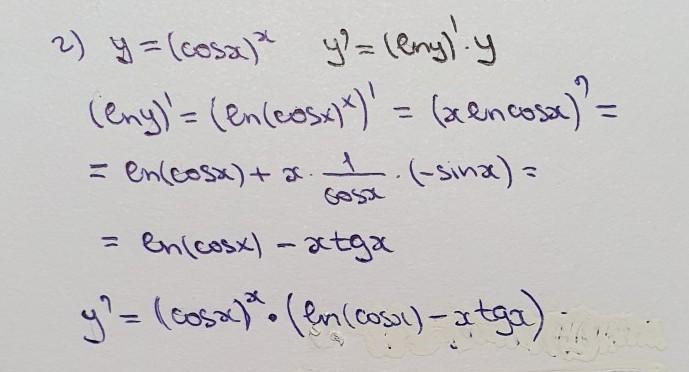 2) y = (cosx)^x   y' = (lny)' · y
(lny)' = (ln(cosx)^x)' = (xlncosx)' =
= ln(cosx) + x · 1/cosx · (-sinx) =
= ln(cosx) - xtgx
y' = (cosx)^x · (ln(cosx) - xtgx)